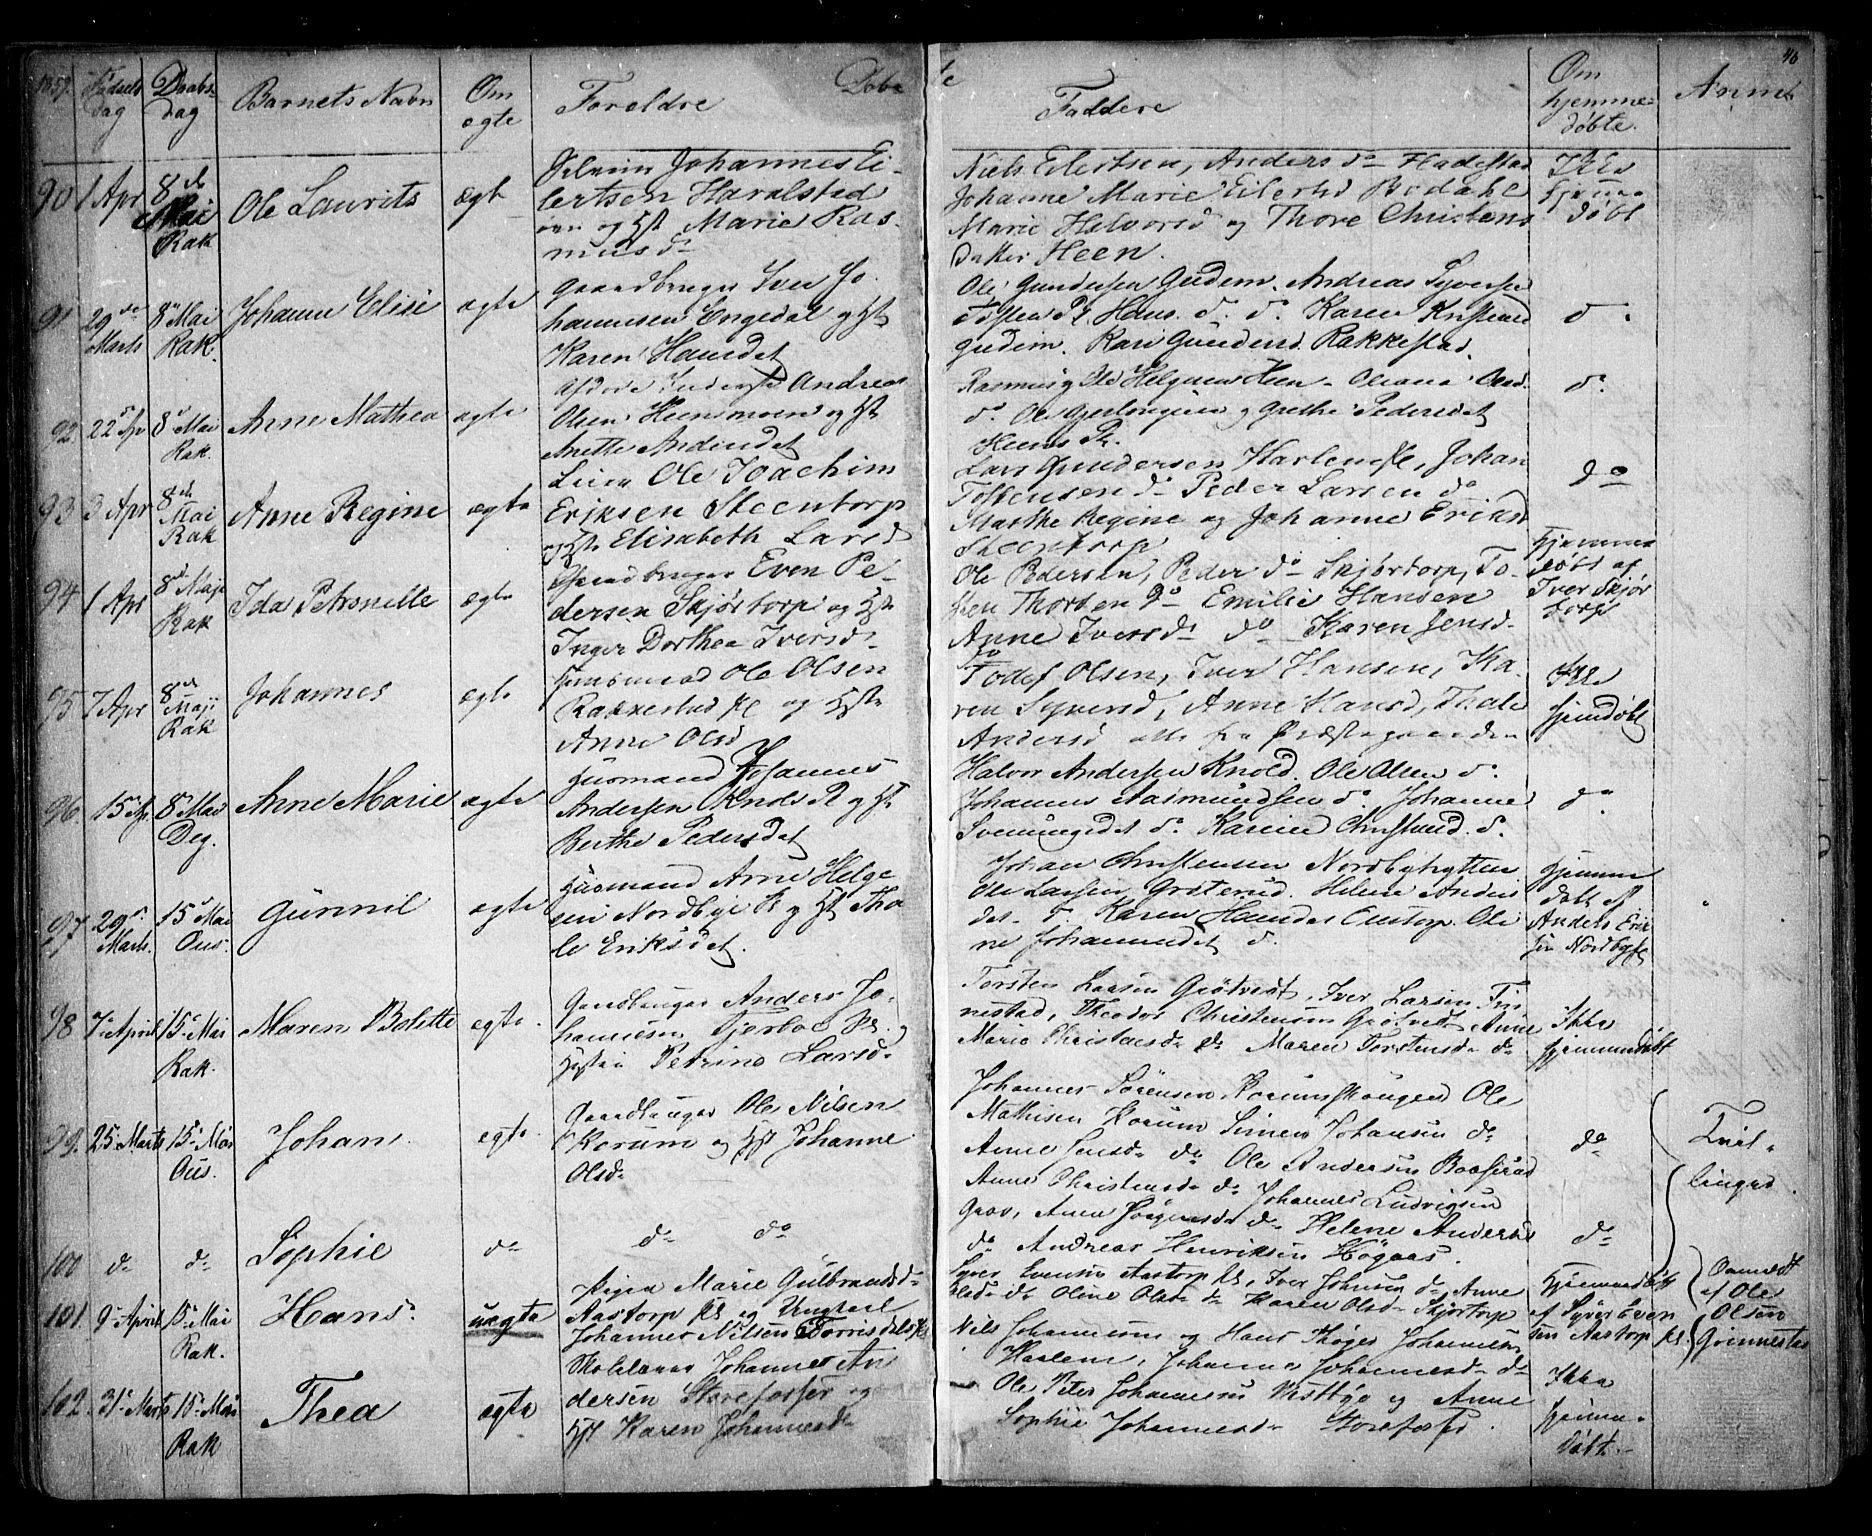 1859. Fødsels Daabs- Barnets Navn Om Forældre Døbte Faddere Om Annet 46
dag dag ægte hjemme-
døbte.
90 1 Apr 8de Mai Rak Ole Laurits ægte
Johannes Ei-
lertsen Haralstad
og Hst Marie Ras-
musd
Niels Eilertsen, Anders do Fladestad
Johanne Marie Eilertsd Bodahl
Marie Halvorsd og Thore Christens
Heen.
Ikke
hjemme
døbt
91 29de Marts 8de Mai Rak. Johanne Elise ægte
Gaardbruger Iver Jo-
hannesen Engedal og Hst
Karen Hansdat
Ole Gundersen Gudem. Andreas Syversen
Tosten Pl. Hans do. do. Karen Kristensd
Gudim. Kari Gundersd. Rakkestad.
do.
92 22 Apr 8 Mai Rak. Anne Mathea ægte
Inderst Andreas
Olsen Heensmoen og Hst
Anette Andersdat
Rasmus og Ole Helgesen Heen. Oliana Olsd.
do. Ole og Grethe Pedersdat
Heens Pl.
do.
93 3 Apr 8de Mai Rak Anne Regine ægte
Leier Ole Joachim
Eriksen Steentorp
og Hst Elisabeth Larsd
Lars Gundersen Harlem Pl, Johan
Tostensen do Peder Larsen do
Marthe Regine og Johanne Eriksd
Steentorp
do
94 1 Apr 8de Maj Rak Ida Petronille ægte
Gaardbruger Even Pe-
dersen Skjørtorp og Hst
Inger Dorthea Iversd
Ole Pedersen, Peder do Skjørtorp, To-
sten Thorsen do Emilie Hansen
Anne Iversd do Karen Jensd
do
Hjemme
døbt af
Iver Skjør
torp
95 7 Apr 8de Maji Rak Johannes ægte
Huusmand Ole Olsen
Rakkestad Pl og Hst
Anne Olsd
Todef Olsen, Iver Hansen, Ka-
ren Syversd, Anne Hansd, Thale
Andersd alle fra Præstegaarden
Ikke
hjemdøbt
96 15 Ap 8de Mai Deg. Anne Marie ægte
Huusmand Johannes
Andersen Knold Pl og Hst
Berthe Pedersdat
Halvor Andersen Knold. Ole Olsen do.
Johannes Aasmundsen do. Johanne
Svenungsdat do. Karine Christensd. do.
do.
97 29de Marts. 15de Mai Ous. Gunnil ægte
Huusmand Arne Helge
sen Nordbye Pl og Hst Tha
le Eriksdat.
Johan Christensen Nordbyhytten
Ole Larsen Grøterud. Helene Anders
dat do. Karen Hansdat Oustorp. Ole
ne Johannesdat do.
Hjemme
døbt af
Anders Erik
sen Nordbye
98 7de April 15de Mai Rak. Maren Bolette ægte.
Gaardbruger Anders Jo-
hannesen Tjerbo Pl. og
Hustru Petrine Larsd.
Torsten Larsen Grøtvedt, Iver Larsen Fin
nestad, Theodor Christensen Grøtvedt, Anne
Marie Christensd. do Maren Torstensd. do
Ikke
hjemmedøbt
99. 25 Marts 15de Mai Ous. Johan. ægte.
Gaardbruger Ole Nilsen
Korum og Hst Johanne
Olsd.
Johannes Sørensen Korumskougen Ole
Mathisen Korum Simen Johansen do
Anne Jensd. do. Ole Andersen Baaserud
do
Tvil-
linger.
100 do do Sophie do do do
Anne Christensd. do Johannes Ludvigsen
Grav, Anne Jørgensd do Helene Andersd
do Andreas Henriksen Høgaas.
do
101 9de April 15de Mai Rak. Hans. uægte
Pigen Marie Gulbrandsd.
Aastorp Pl. og Ungkarl
Johannes Nilsen Torrisdals Pl
Syver Evensen Aastorp Pl., Iver Johnsen do Anne
Olsd. do Oline Olsd do Karen Olsd. Skjørtorp
Hjemmedøbt
af Syver Even
sen Aastorp Pl.
Anmeldt
af Ole
Olsen
Grimmestad
102. 31de Marts 15de Mai Rak Thea ægte
Skolelærer Johannes An
dersen Storefosser og
Hst Karen Johannesd
Nils Johannesen og Hans Høger Johannesen
Haslem, Johanne Johannesd. do
Ole Peter Johannesen Vestbye og Anne
Sophie Johannesd. Storefosser.
Ikke
hjemme-
døbt.